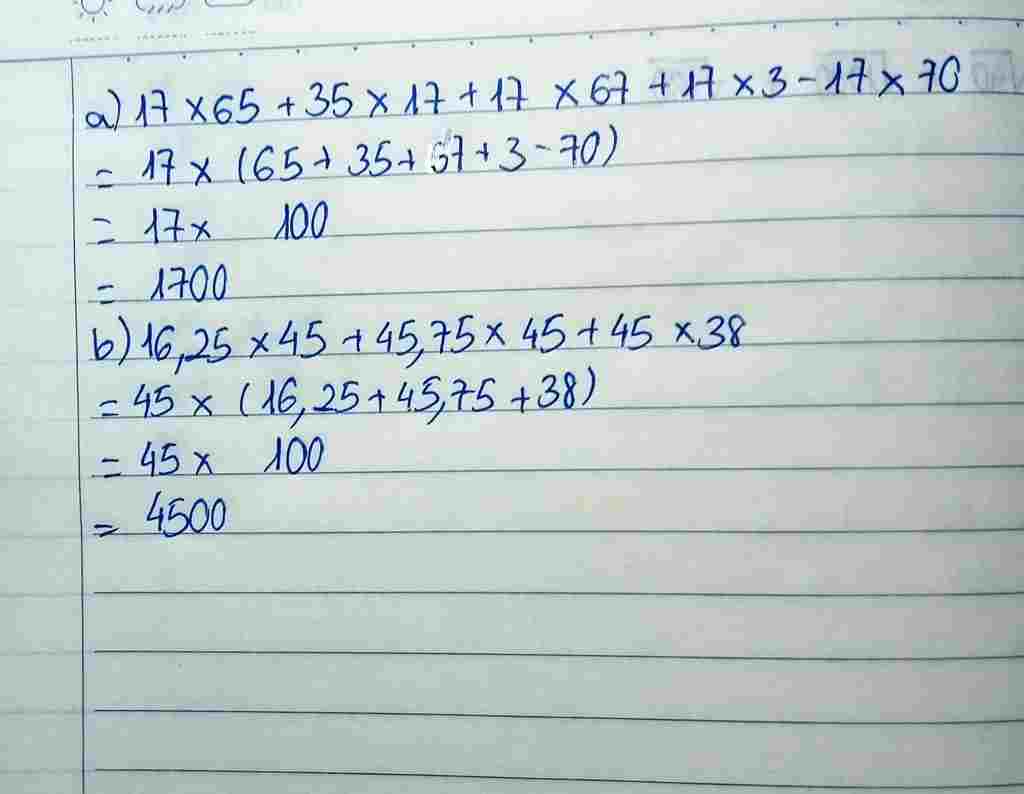 a) 17 x 65 + 35 x 17 + 17 x 67 + 17 x 3 - 17 x 70
= 17 x (65 + 35 + 67 + 3 - 70)
= 17 x 100
= 1700
b) 16,25 x 45 + 45,75 x 45 + 45 x 38
= 45 x (16,25 + 45,75 + 38)
= 45 x 100
= 4500